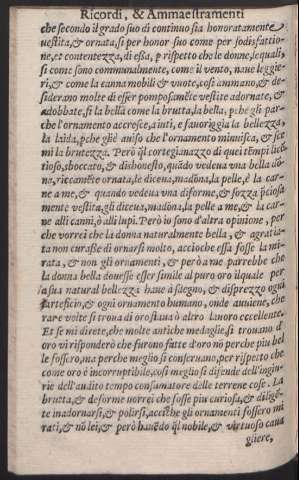 Ricordi, & Ammaestramenti
che secondo il grado suo di continuo sia honoratamente
uestita, & ornata, si per honor suo come per sodisfattio-
ne, et contentezza, di essa, p rispetto che le donne, lequali,
si come sono communalmente, come il uento, naue leggie-
ri, & come la canna mobili & uuote, cosi ammano, & de-
siderano molte di esser pomposamēte uestite adornate, &
adobbate, si la bella come la brutta, la bella, pche gli par-
che l'ornamento accresce, aiuti, e fauoriggia la bellezza,
la laida, pche glie auiso che l'ornamento minuisca, & sce
mi la brutezza. Però ql cortegianazzo di quei tēmpi lice
tioso, sboccato, & dishonesto, quādo uedeua una bella dō
na, riccamēte ornata, le diceua, madōna, la pelle, è la car-
ne a me, & quando uedeua una diforme, & sozza pciosa
mente uestita, gli diceua, madōna, la pelle a me, & la car-
ne alli cani, ò alli lupi. Però io sono d'altra opinione, per
che vorrei che la donna naturalmente bella, & agratia-
ta non curasse di ornarsi molto, accioche essa fosse la mi-
rata, & non gli ornamenti, & però a me parrebbe che
la donna bella douesse esser simile al puro oro ilquale per
la sua natural bellezza haue à sdegno, & disprezzo ogni
artificio, & ogni ornamento humano, onde auuiene, che
rare volte si troua di oro lauoro ò altro lauoro eccellente.
Et se mi direte, che molte antiche medaglie, si trouano d'
oro vi risponderò che furono fatte d'oro nō perche piu bel
le fossero, ma perche meglio si conseruano, per rispetto che
come oro è incorruttibile, cosi meglio si difende dell'ingiu-
rie dell'audito tempo consumatore delle terrene cose. La
brutta, & deforme uorrei che fosse piu curiosa, & dilige-
te inadornarsi, & polirsi, accioche gli ornamenti fossero mi
rati, & nō lei, & però hauēdo ql nobile, & virtuoso caua
gliere,